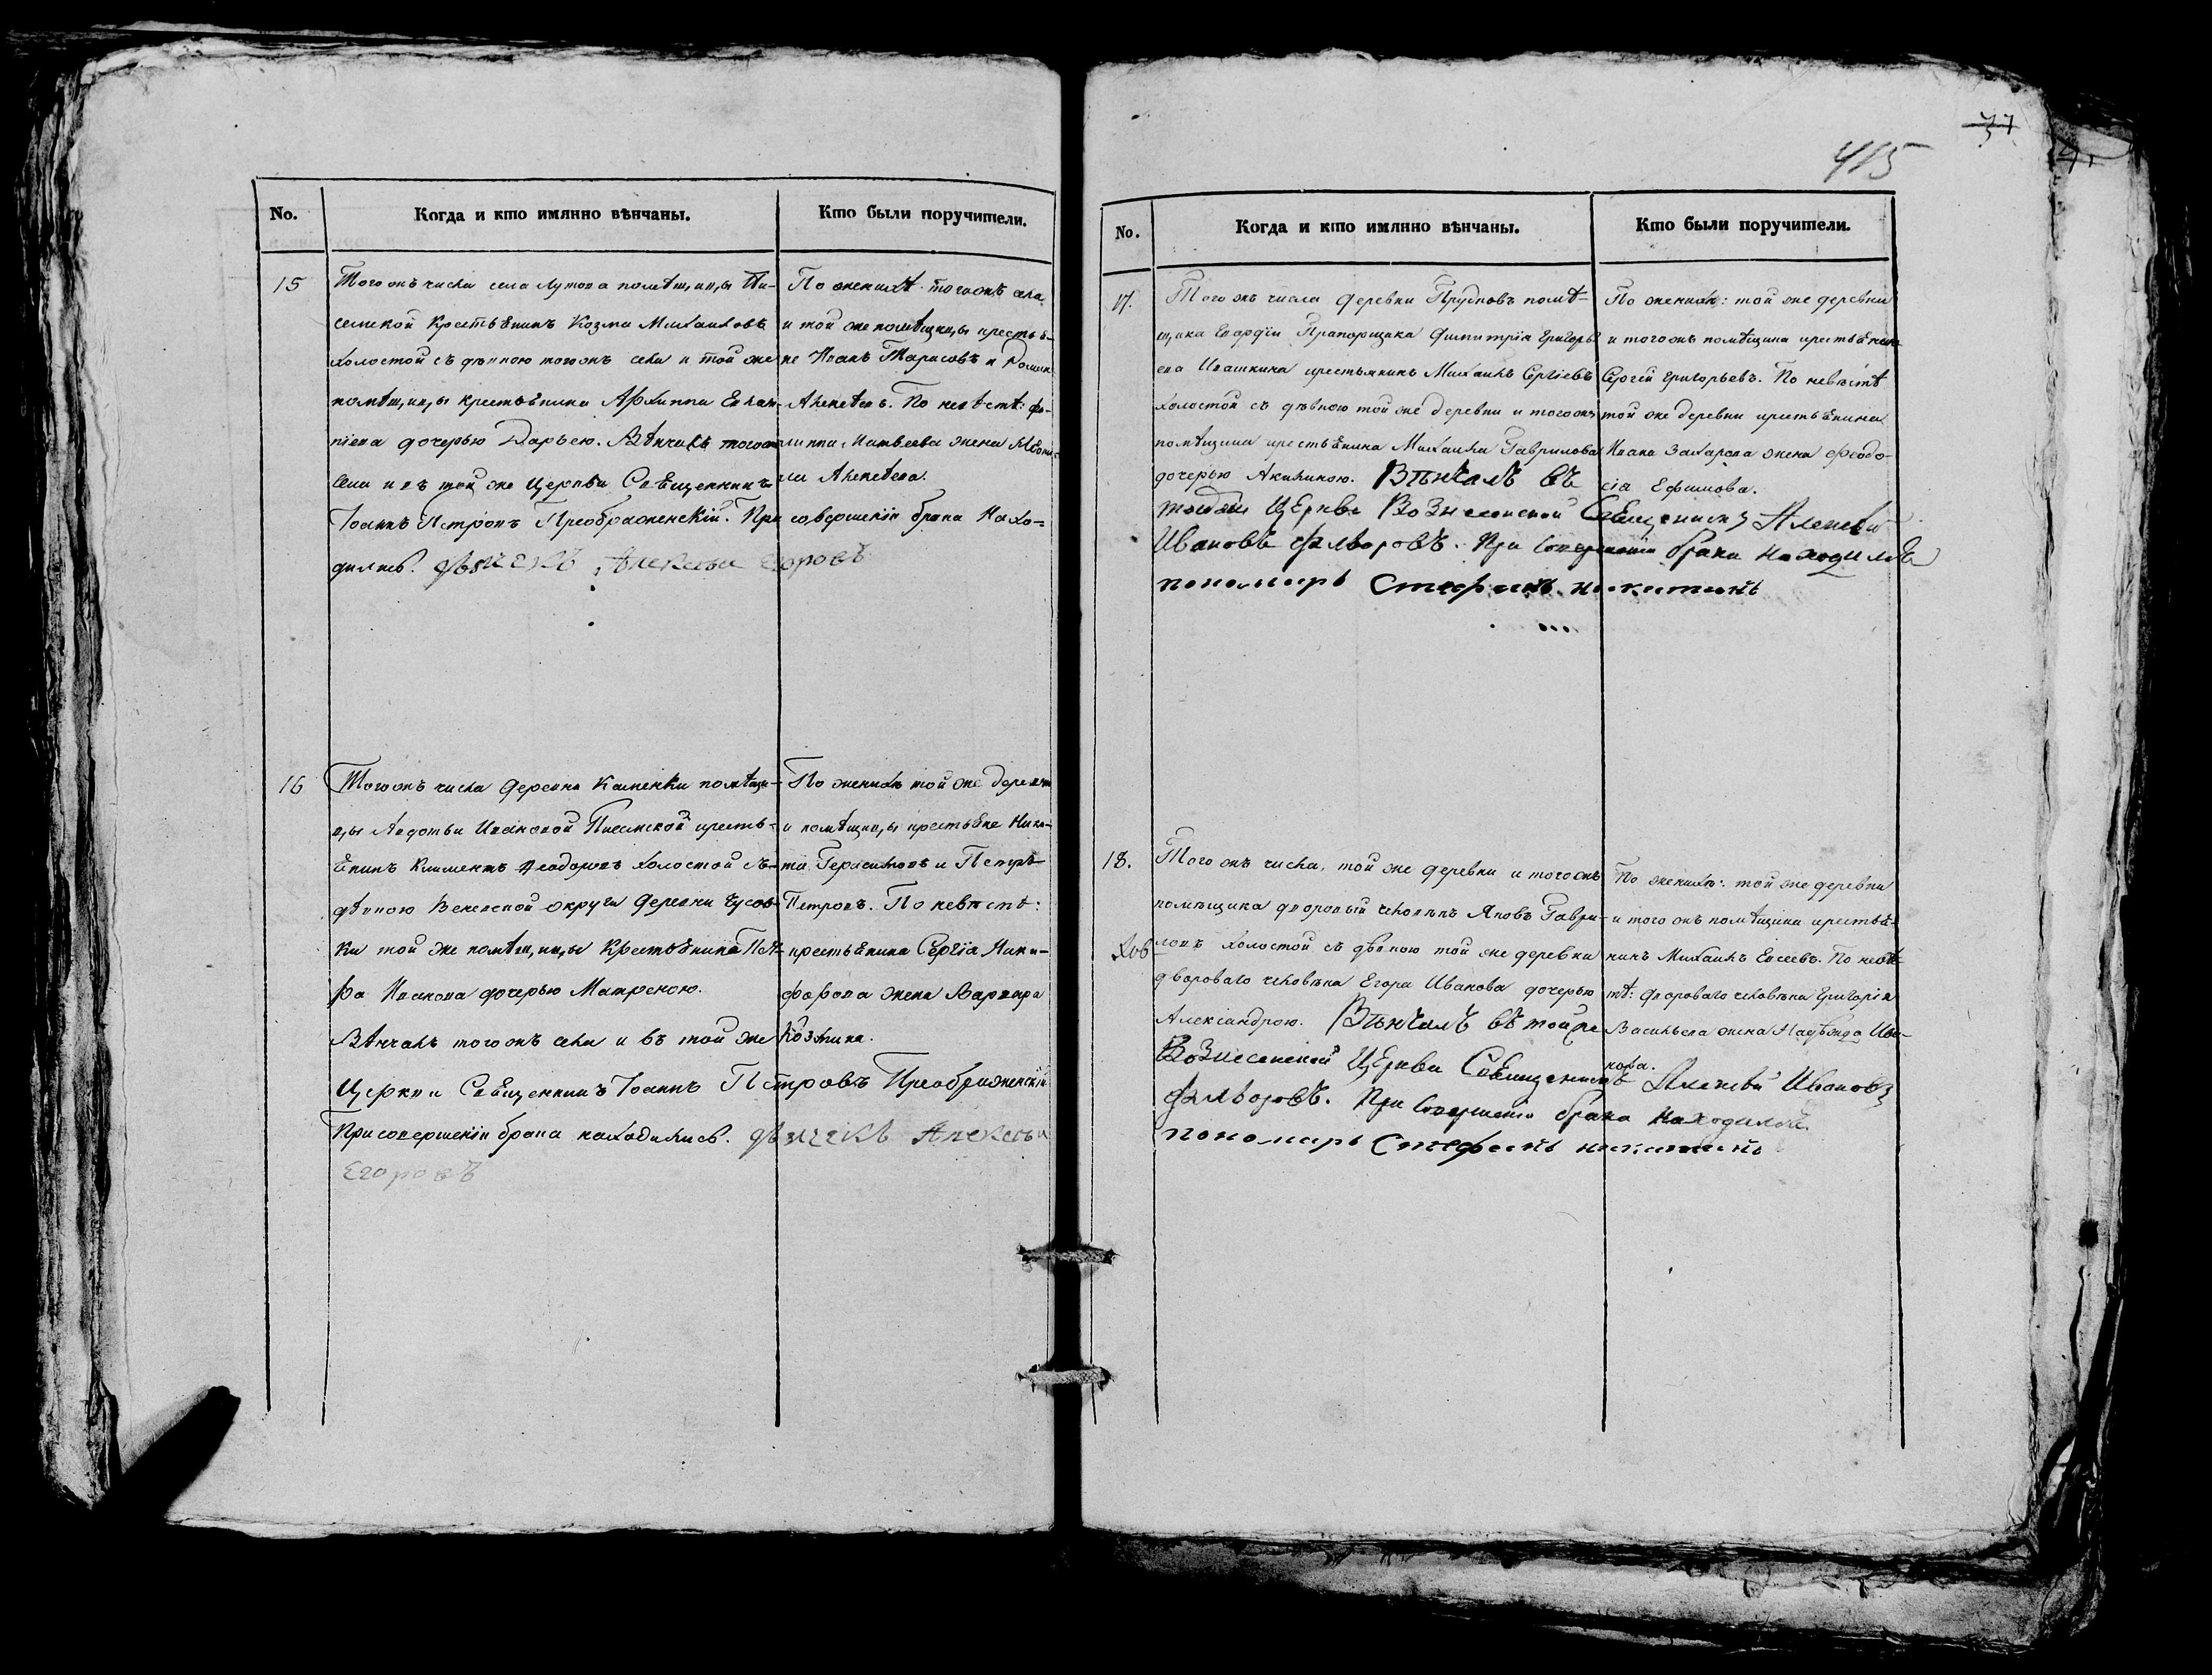 37
415
No.
Когда и кто имянно вѣнчаны.
Кто были поручители.
15
Тогожъ числа села Лутова помѣщицы Пи-
семской Крестьѣнинъ Козма Михаиловъ
холостой съ дѣвкою тогожъ села и той же
помѣщицы крестьѣнина Архиппа Евлам-
піева дочерью Дарьею. Вѣнчалъ тогожъ
села и въ той же Церкви Свѣщенникъ
Іоаннъ Петровъ Преображенскій. При совершеніи брака Нахо-
дились. дьячекъ Алексѣи Егоровъ
По женихѣ тогожъ села
и той же помѣщицы крестьѣ-
не Иванъ Тарасовъ и Роман
Алексѣевъ. По невѣстѣ: фи-
липпа Матвеева жена
Алексѣева.
16
Тогожъ числа деревни Каменки помѣщи-
цы Авдотьи Ивановой Писемской кресть-
ѣнинъ Климентъ Феодоровъ холостой съ
дѣвкою Веневской округи деревни Чусов-
ки той же помѣщицы Крестьѣнина
Иванова дочерью Матреною.
Вѣнчалъ тогожъ села и въ той же
Церкви Свѣщенникъ Іоаннъ Петровъ Преображенскій
При совершеніи брака находились. дьячекъ Алексѣи
Егоровъ
По женихѣ той же деревни
и помѣщицы крестьѣне Ники-
та Герасимовъ и Петръ
Петровъ. По невѣстѣ:
крестьѣнина Сергія Ники-
форова жена Варвара
Козмина.
No.
Когда и кто имянно вѣнчаны.
Кто были поручители.
17.
Тогожъ числа деревни Прудковъ помѣ-
щика Гвардіи Прапорщика Димитрія Григорь
ева Ивашкина крестьянинъ Михаилъ Сергіевъ
холостой съ дѣвкою той же деревни и тогожъ
помѣщика крестьѣнина Михаила Гаврилова
дочерью Акилиною. Вѣнчалъ въ
тойже Церкви Вознесенской Свѣщенникъ Алексѣй
Ивановъ Фаворовъ. При Совершеніи брака находился
пономарь Стефанъ никитинъ
По женихѣ: той же деревни
и тогожъ помѣщика крестьѣнинъ
Сергей Григорьевъ. По невѣстѣ
той же деревни крестьѣнина
Ивана Захарова жена Феодо-
сіа Ефимова.
18.
Тогожъ числа, той же деревни и тогожъ
помѣщика дворовый человѣкъ Яковъ Гаври-
ловъ холостой съ дѣвкою той же деревни
двороваго человѣка Егора Иванова дочерью
Александрою. Вѣнчалъ въ тойже
Вознесенской Церкви Свѣщенникъ Алексѣй Ивановъ
Фаворовъ. При Совершеніи брака находился
пономарь Стефанъ никитинъ
По женихѣ: той же деревни
и тогожъ помѣщика крестьѣ-
нинъ Михаилъ Евсеевъ. По невѣс-
тѣ: двороваго человѣка Григорія
Васильева жена Надѣжда Ива-
нова.